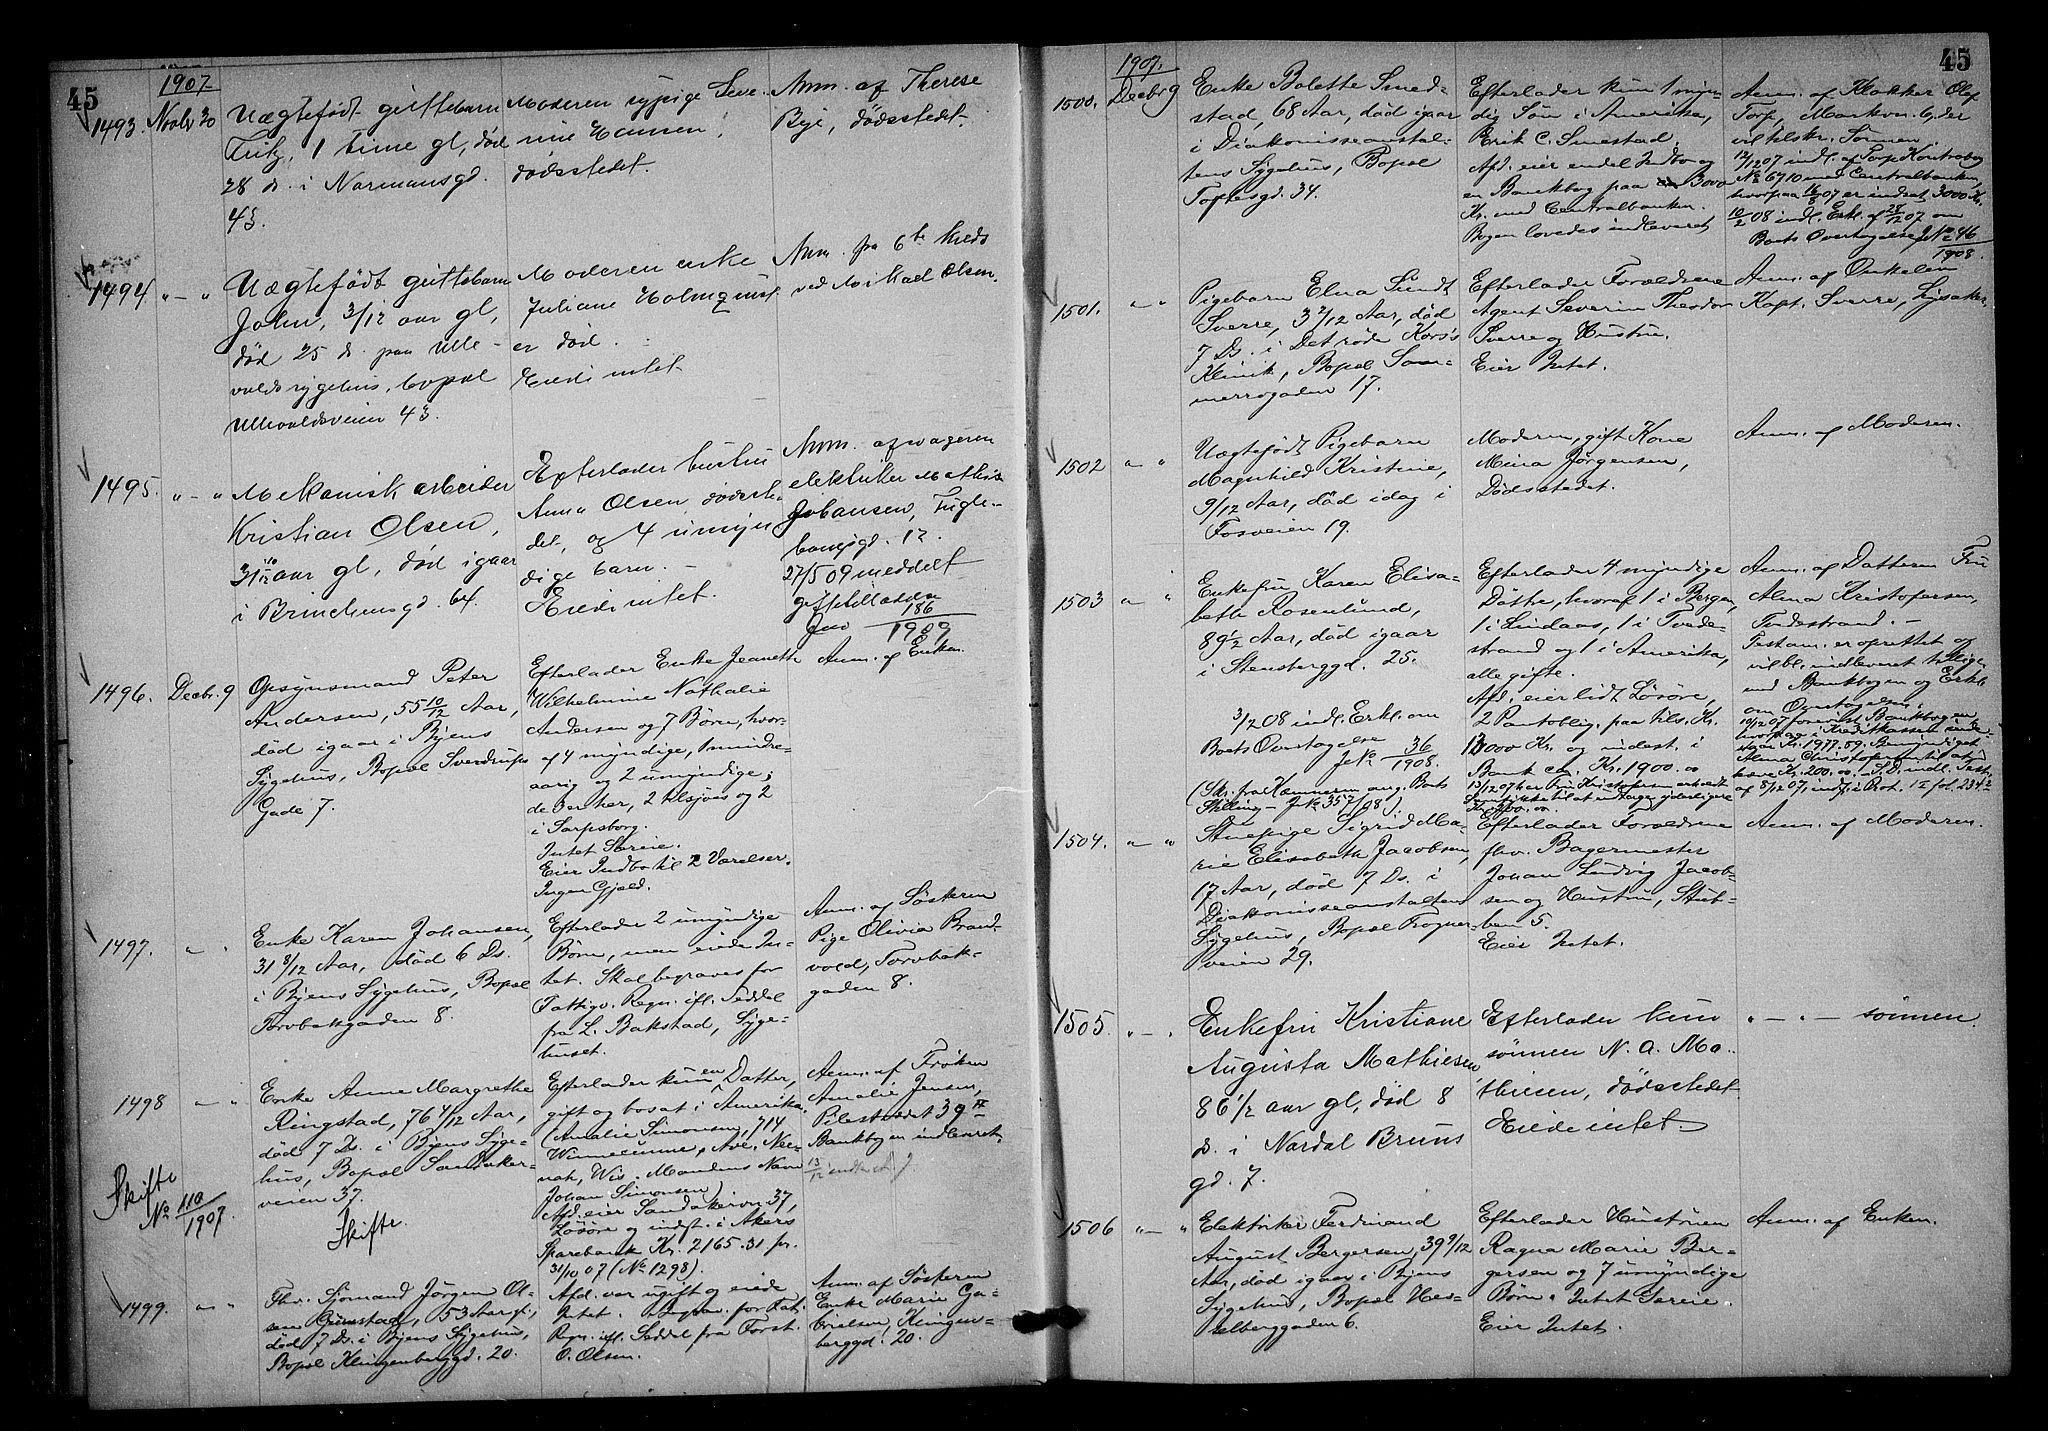 45
1907.
1493. Novbr 30
Uægtefødt guttebarn
Fritz, 1 time gl, død
28 ds. i Normansgd.
43.
Moderen sypige Seve-
rine Hansen,
dødsstedet.
Anm. af Therese
Bye, dødsstedet.
1494 " — "
Uægtefødt guttebarn
John, 3/12 aar gl,
død 25 ds. paa Ulle-
vaalds sygehus, bopæl
Ullevaaldsveien 43.
Moderen enke
Juliane Holmquist
er død.
Eiedi intet
Anm. fra 6te Kreds
ved Mikael Olsen.
1495. " — "
Mekanisk arbeider
Kristian Olsen,
31 10/12 aar gl, død igaar
i Brinchensgd. 64.
Efterlader hustru
Anna Olsen, dødsste-
det, og 4 umyn-
dige barn. —
Eiedi intet.
Anm. af
elektriker Mathis
Johansen, Fugle-
hausgd. 12.
27/5 09 meddelt
gifttilladelse
Jno 186/1909
1496. Decbr. 9
Opsynsmand Peter
Andersen, 55 10/12 Aar,
død igaar i Byens
Sygehus, Bopæl Sverdrups
Gade 7.
Efterlader Enke Jeanette
Wilhelmine Nathalie
Andersen og 7 Børn, hvor-
af 4 myndige, 1 mindre-
aarig og 2 umyndige;
de 3 er her, 2 tilsjøs og 2
i Sarpsborg.
Intet Særeie.
Eier Indbo til 2 Værelser.
Ingen Gjæld.
Anm. af Enken.
1497. " "
Enke Karen Johansen,
31 8/12 Aar, død 6 Ds.
i Byens Sygehus, Bopæl
Torvbakgaden 8.
Efterlader 2 umyndige
Børn, men eiede In-
tet. Skal begraves for
Fattigv. Regn. ifl. Seddel
fra L. Bakstad, Syge-
huset.
Anm. af Søsteren
Pige Olivia Brand-
vold, Torvbak-
gaden 8.
1498 — "
Enke Anne Margrethe
Ringstad, 76 4/12 Aar,
død 7 Ds. i Byens Syge-
hus, Bopæl Sandaker-
veien 37.
Skifte
Skifte
No 110/1907.
Efterlader kun en Datter,
gift og bosat i Amerika
(Amalie Simonsen, 714
Ave, Nee-
nah, Wis. Mandens Navn
Johan Simonsen)
Afd. eier Sandakervn. 37,
Løsøre og indst. i Akers
Sparebank Kr. 2165.31 pr.
31/10 07 (No 1298).
Anm. af Frøken
Amalie Jensen,
Pilestrædet 39 IV
Bankbogen indleveret
13/12
1499. — "
Fhv. Sjømand Jørgen Ol-
sen Grimstad, 53 Aar gl.,
død 7 Ds. i Byens Sygehus,
Bopæl Klingenberggd. 20.
Afd. var ugift og eiede
Intet. Begrav. for Fat.
Regn. ifl. Seddel fra Forst.
O. Olsen.
Anm. af Søsteren
Enke Marie Ga-
brielsen, Klingen-
berggd. 20.
45
1907.
1500. Decbr 9
Enke Bolette Smed-
stad, 68 Aar, død igaar
i Diakonisseanstal-
tens Sygehus, Bopæl
Toftesgd. 34.
Efterlader kun 1 myn-
dig Søn i Amerika,
Erik C. Smestad.
Afd. eier endel Indbo og
en Bankbog paa 3000
Kr. med Centralbanken.
Bogen lovedes indleveret
Anm. af Klokker Olaf
Torp, Markvn. 6, der
vil tilskr. Sønnen.
12/12 07 indl. af Torp Kontrabog
No 6710 med Centralbanken,
hvorpaa 16/8 07 er indsat 3000 Kr.
10/2 08 indl. Erkl. af 28/12 07 om
Boets Overtagelse J No 46/1908.
1501. " "
Pigebarn Elna Lindt
Sverre, 3 2/12 Aar, død
7 Ds. i Det røde Kors's
Klinik, Bopæl Som-
merrogaden 17.
Efterlader Forældrene
Agent Severin Theodor
Sverre og Hustru.
Eier Intet.
Anm. af Onkelen
Kapt. Sverre, Lysaker.
1502 " "
Uægtefødt Pigebarn
Magnhild Kristine,
9/12 Aar, død idag i
Fosveien 19.
Moderen, gift Kone
Mina Jørgensen,
Dødsstedet.
Anm. af Moderen.
1503 " "
Enkefru Karen Elisa-
beth Rosenlund,
89 1/2 Aar, død igaar
i Stensberggd. 25.
3/2 08 indl. Erkl. om
Boets Overtagelse
J No 36/1908.
(Skr. fra Kemneren ang. Boets
Skilling - Jk 357/08)
Efterlader 4 myndige
Døtre, hvoraf 1 i Bergen,
1 i Lindaas, 1 i Tvede-
strand og 1 i Amerika,
alle gifte.
Afd. eier lidt Løsøre,
2 Pantoblig. paa tils. Kr.
13000 Kr. og indest. i
Bank ca. Kr. 1900.00
13/12 07 har Fru Kristofersen erholdt
Samtykke til at udtage yderligere
Kr. 300.00.
Anm. af Datteren Fru
Alma Kristofersen,
Tvedestrand. —
Testam. er oprettet og
vil bl. indleveret tillige
med Bankbogen og Erkl.
om Overtagelse.
10/12 07 forevist Bankbogen
hvorpaa i Kreditkassen inde-
staar Kr. 1977.59. Bemyndiget
Alma Christofersen til at
hæve Kr. 200.00. — S.D. indl. Test.
af 8/12 07, indf. i Prot. I fol. 234 2
1504. " "
Stuepige Sigrid Ma-
rie Elisabeth Jacobsen,
17 Aar, død 7 Ds. i
Diakonisseanstaltens
Sygehus, Bopæl Frogner-
veien 29.
Efterlader Forældrene
fhv. Bagermester
Johan Ludvig Jacob-
sen og Hustru, Stut-
ben 5.
Eier Intet.
Anm. af Moderen.
1505. " — "
Enkefru Kristiane
Augusta Mathiesen
86 1/2 aar gl, død 8
ds. i Nordal Bruns
gd. 7.
Efterlader kun
sønnen N. A. Ma-
thiesen, dødsstedet
Eiede intet
" — " — sønnen.
1506 " — "
Elektriker Ferdinand
August Bergersen, 39 9/12
Aar, død igaar i Byens
Sygehus, Bopæl Hes-
selberggaden 6.
Efterlader Hustruen
Ragna Marie Ber-
gersen og 7 umyndige
Børn. Intet Særeie.
Eier Intet.
Anm. af Enken.